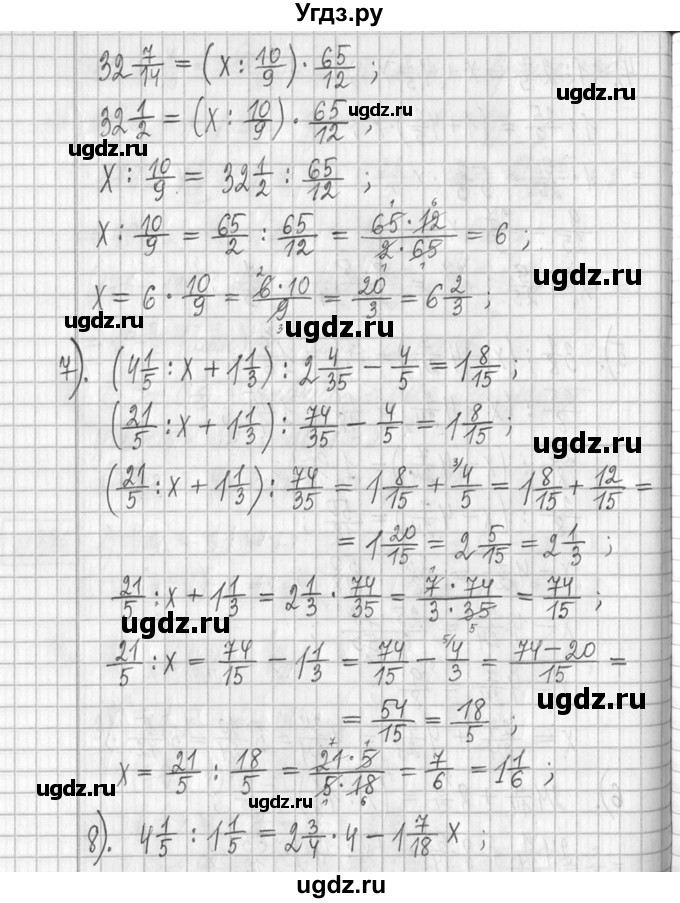 Угдз.ру
32 7/14 = (x : 10/9) · 65/12 ;
ugdz.ru
32 1/2 = (x : 10/9) · 65/12 ;
ugdz.ru
ugdz.ru
x : 10/9 = 32 1/2 : 65/12 ;
x : 10/9 = 65/2 : 65/12 = 65 · 12 / 2 · 65 = 6 ;
ugdz.ru
x = 6 · 10/9 = 6 · 10 / 9 = 20/3 = 6 2/3 ;
7). (4 1/5 : x + 1 1/3) : 2 4/35 − 4/5 = 1 8/15 ;
(21/5 : x + 1 1/3) : 74/35 − 4/5 = 1 8/15 ;
ugdz.ru
(21/5 : x + 1 1/3) : 74/35 = 1 8/15 + 4/5 = 1 8/15 + 12/15 =
= 1 20/15 = 2 5/15 = 2 1/3 ;
21/5 : x + 1 1/3 = 2 1/3 · 74/35 = 7 · 74 / 3 · 35 = 74/15 ;
ugdz.ru
21/5 : x = 74/15 − 1 1/3 = 74/15 − 4/3 = 74 − 20 / 15 =
ugdz.ru
= 54/15 = 18/5 ;
x = 21/5 : 18/5 = 21 · 5 / 5 · 18 = 7/6 = 1 1/6 ;
ugdz.ru
ugdz.ru
8). 4 1/5 : 1 1/5 = 2 3/4 · 4 − 1 7/18 x ;
ugdz.ru
ugdz.ru